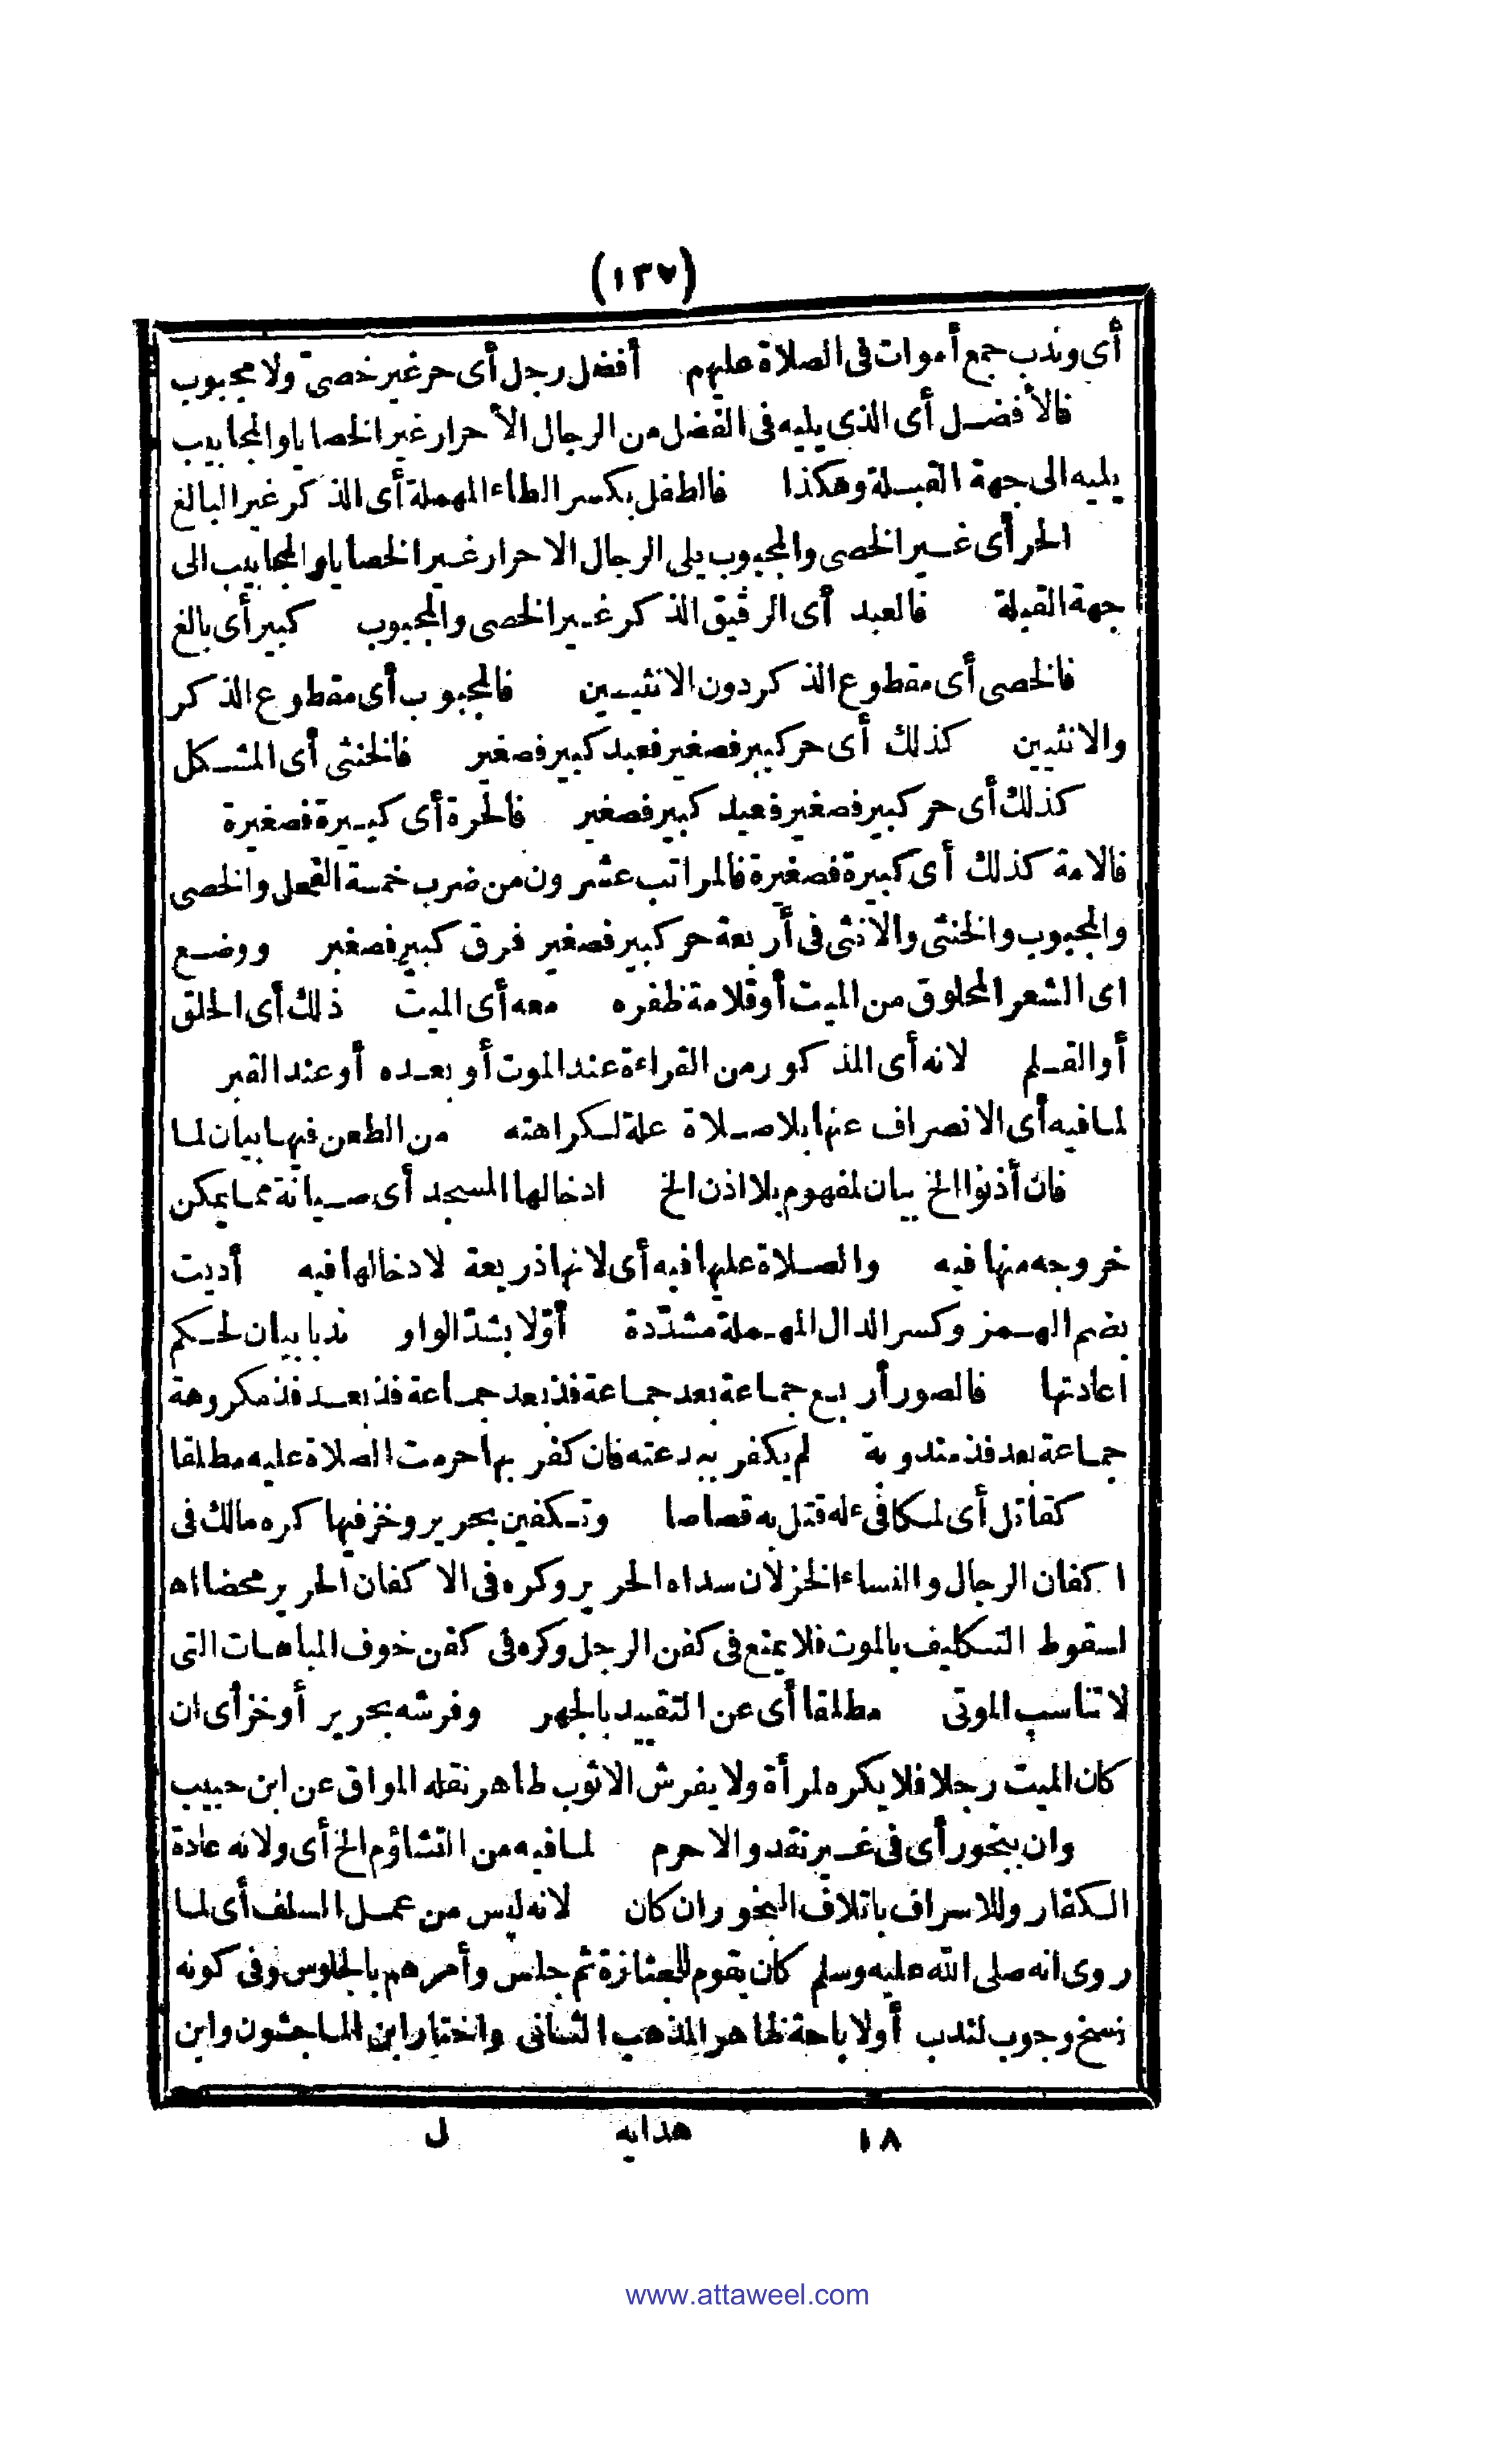 (١٣٧)
أى وندب جمع أموات فى الصلاة عليهم أفضل رجل أى حر غير خصىّ ولا مجبوب
فالأفضل أى الذى يليه فى الفضل من الرجال الأحرار غير الخصايا والمجابيب
يليه الى جهة القبلة وهكذا فالطفل بكسر الطاء المهملة أى الذكر غير البالغ
الحر أى غير الخصى والمجبوب يلى الرجال الاحرار غير الخصايا والمجابيب الى
جهة القبلة فالعبد أى الرقيق الذكر غير الخصى والمجبوب كبير أى بالغ
فالخصى أى مقطوع الذكر دون الانثيين فالمجبوب أى مقطوع الذكر
والانثيين كذلك أى حر كبير فصغير فعبد كبير فصغير فالخنثى أى المشكل
كذلك أى حر كبير فصغير فعبد كبير فصغير فالحرة أى كبيرة فصغيرة
فالامة كذلك أى كبيرة فصغيرة فالمراتب عشرون من ضرب خمسة الفحل والخصى
والمجبوب والخنثى والانثى فى أربعة حر كبير فصغير فرق كبير فصغير ووضع
اى الشعر المحلوق من الميت أو قلامة ظفره معه أى الميت ذلك أى الحلق
أو القلم لانه أى المذكور من القراءة عند الموت أو بعده أو عند القبر
لما فيه أى الانصراف عنها بلا صلاة علة لكراهته من الطعن فيها بيان لما
فان أذنوا الخ بيان لمفهوم بلا اذن الخ ادخالها المسجد أى صيانة مما يمكن
خروجه منها فيه والصلاة عليها فيه أى لانها ذريعة لادخالها فيه أديت
بضم الهمز وكسر الدال المهملة مشدّدة أوّلا بشدّ الواو ندبا بيان لحكم
اعادتها فالصور أربع جماعة بعد جماعة فذ بعد جماعة فذ بعد فذ مكروهة
جماعة بعد فذ مندوبة لم يكفر ببدعته فان كفر بها حرمت الصلاة عليه مطلقا
كقاتل أى لمكافئ له قتل به قصاصا وتكفين بحرير وخز فيها كره مالك فى
اكفان الرجال والنساء الخز لان سداه الحرير وكره فى الاكفان الحرير محضا اه
لسقوط التكليف بالموت فلا يمنع فى كفن الرجل وكره فى كفن خوف المباهات التى
لا تناسب الموتى مطلقا أى عن التقييد بالجهر وفرشه بحرير أو خز أى ان
كان الميت رجلا فلا يكره لمرأة ولا يفرش الا ثوب طاهر نقله المواق عن ابن حبيب
وان ببخور أى فى غير نقد والا حرم لما فيه من التشاؤم الخ أى ولانه عادة
الكفار وللاسراف باتلاف البخور ان كان لانه ليس من عمل السلف أى لما
روى انه صلى الله عليه وسلم كان يقوم للجنازة ثم جلس وأمرهم بالجلوس وفى كونه
نسخ وجوب لندب أو لاباحة ظاهر المذهب الثانى واختار ابن الماجشون وابن
١٨ هدايه ل
www.attaweel.com